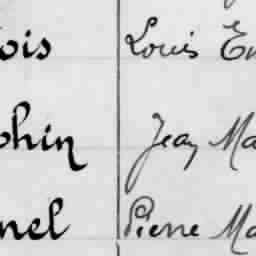 ois Louis Em
phin Jean Ma
nel Pierre Ma